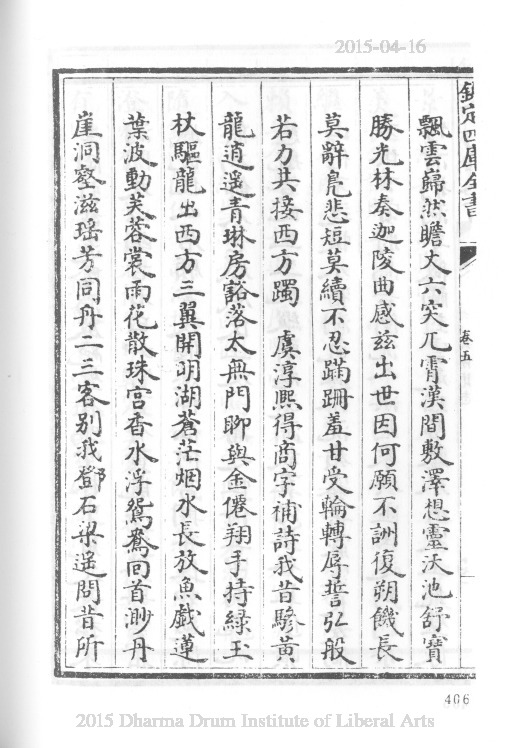 2015-04-16
欽定四庫全書
卷五
飄雲巋然瞻丈六突兀霄漢間敷澤想靈沃池舒寶
勝光林奏迦陵曲感茲出世因何願不詶復朔饑長
莫辭鳧悲短莫續不忍蹣跚羞甘受輪轉辱誓弘般
若力共接西方躅 虞淳熙得商字補詩我昔驂黃
龍逍遥青琳房豁落太無門聊與金僊翔手持緑玉
杖驅龍出西方三翼開明湖蒼茫烟水長放魚戲蓮
葉波動芙蓉裳雨花散珠宮香水浮鴛鴦回首渺丹
崖洞壑滋瑶芳同舟二三客别我鄧石梁遥問昔所
406
2015 Dharma Drum Institute of Liberal Arts